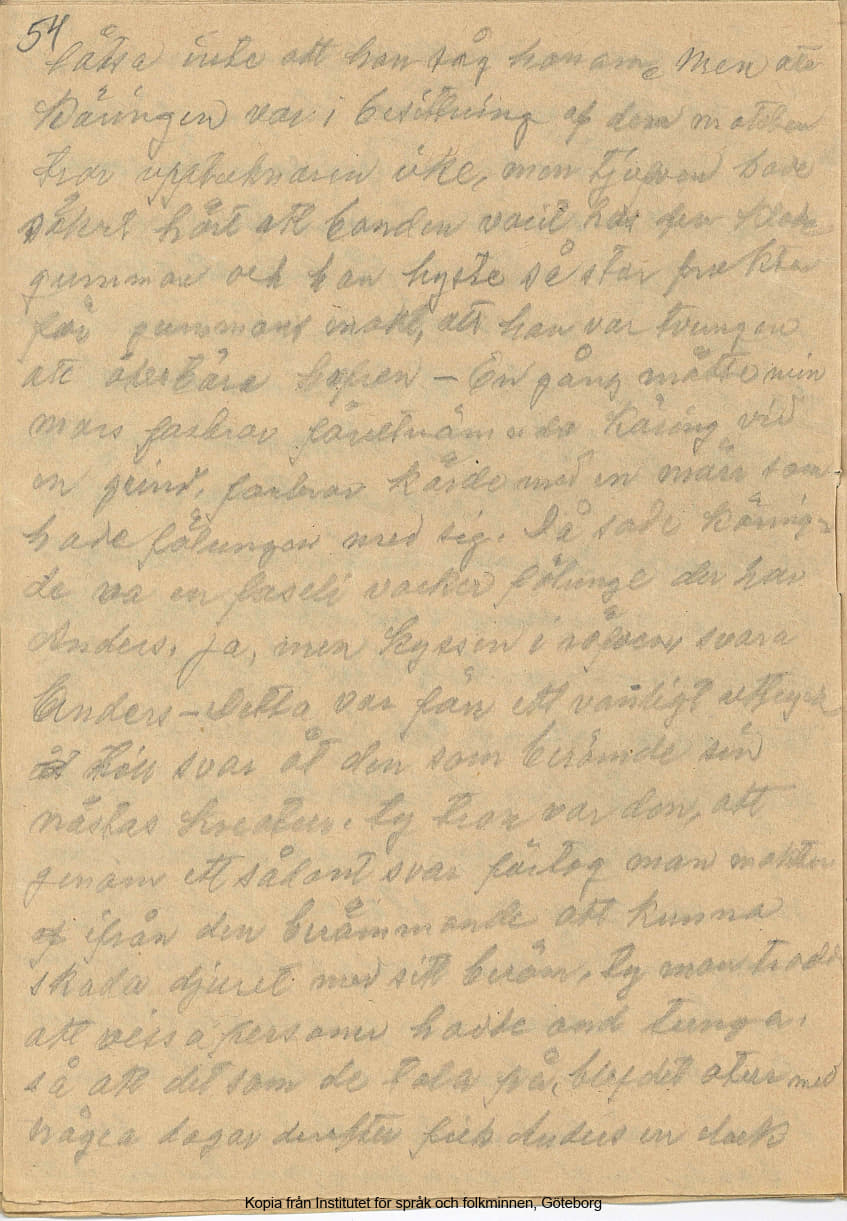 54
låtsa inte att han såg honom. Men att
Käringen var i besittning af dem makten
tror upptecknaren icke, men tjuven hade
säkert hört att bonden varit hos den kloka
gumman och han hyste så stor fruktan
för gummans makt, att han var tvungen
att återbära - En gång mötte min
mors farbror förutnämnda Käring vid
en grind, farbror körde med en märr som
hade fölungen med sig. Då sade Käring-
de va en faseli vacker fölunge der har
Anders. ja, men kyssen i röfven svara
Anders - Detta var förr ett vanligt uttryck
till svar åt den som berömde sin
nästas kreatur. ty tron var den, att
genom ett sådant svar förtog man makten
ifrån den berömmande att kunna
skada djuret med sitt beröm, ty man trodde
att vissa personer hadde ond tunga.
så att det som de tala på, blef det otur med
några dagar derefter fick Anders en
Kopia från Institutet för språk och folkminnen, Göteborg